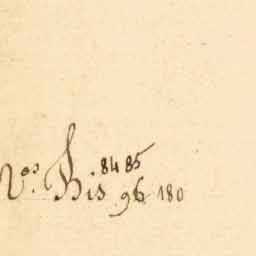 84 85
N.os Bis 96 180